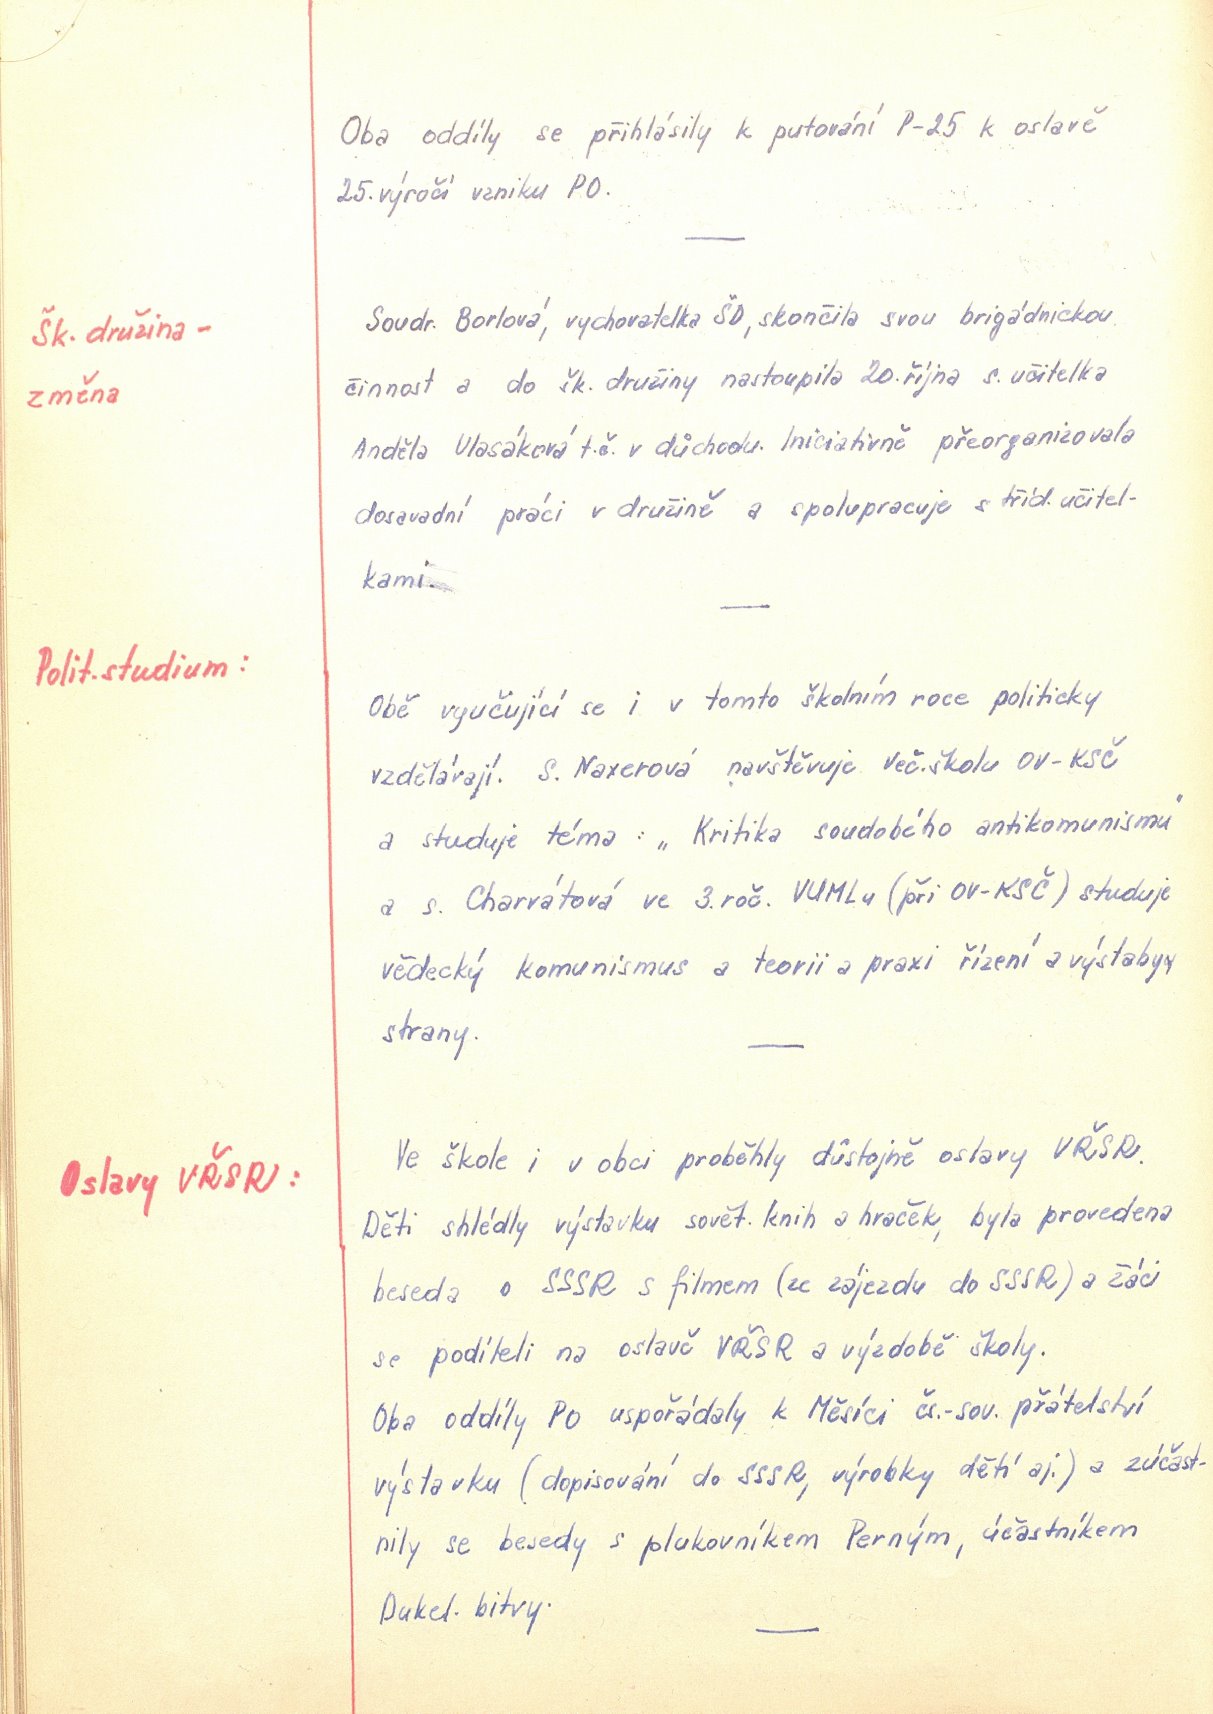 Oba oddíly se přihlásily k putování P-25 k oslavě
25. výročí vzniku PO.
Šk. družina -
změna
Soudr. Borlová, vychovatelka ŠD, skončila svou brigádnickou
činnost a do šk. družiny nastoupila 20. října s. učitelka
Anděla Vlasáková t.č. v důchodu. Iniciativně přeorganizovala
dosavadní práci v družině a spolupracuje s tříd. učitel-
kami.
Polit. studium:
Obě vyučující se i v tomto školním roce politicky
vzdělávají. S. Naxerová navštěvuje več. školu OV-KSČ
a studuje téma: „Kritika soudobého antikomunismu"
a s. Charvátová ve 3. roč. VUMLu (při OV-KSČ) studuje
vědecký komunismus a teorii a praxi řízení a výstaby
strany.
Oslavy VŘSR:
Ve škole i v obci proběhly důstojně oslavy VŘSR.
Děti shlédly výstavku sovět. knih a hraček, byla provedena
beseda o SSSR s filmem (ze zájezdu do SSSR) a žáci
se podíleli na oslavě VŘSR a výzdobě školy.
Oba oddíly PO uspořádaly k Měsíci čs.-sov. přátelství
výstavku (dopisování do SSSR, výrobky dětí aj.) a zúčast-
nily se besedy s plukovníkem Perným, účastníkem
Dukel. bitvy.